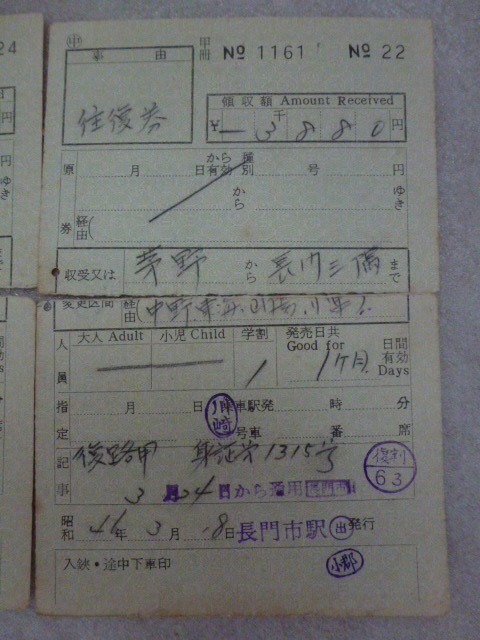 24
㊥
甲
冊
№ 1161
№ 22
事 由
往復券
領収額 Amount Received
千
¥ 3 8 8 0 円
原
券
から
月 日有効
種
別
号 円
から
ゆき
経
由
収受又は
変更区間
茅野 から 長門三隅 まで
経
由
大人 Adult
小児 Child
学割
発売日共
Good for
日間
有効
Days
人
員
1
1ヶ月
指
定
月 日 乗車駅発 時 分
川崎
号車 番 席
記
事
復路甲 身証才1315号
復割
63
3月24日から適用 長門市
昭
和
46年 3月 8日 長門市駅 出 発行
入鋏・途中下車印
小郡